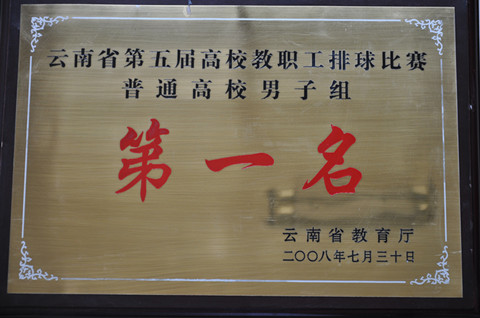 云南省第五届高校教职工排球比赛
普通高校男子组
第一名
云南省教育厅
二〇〇八年七月三十日